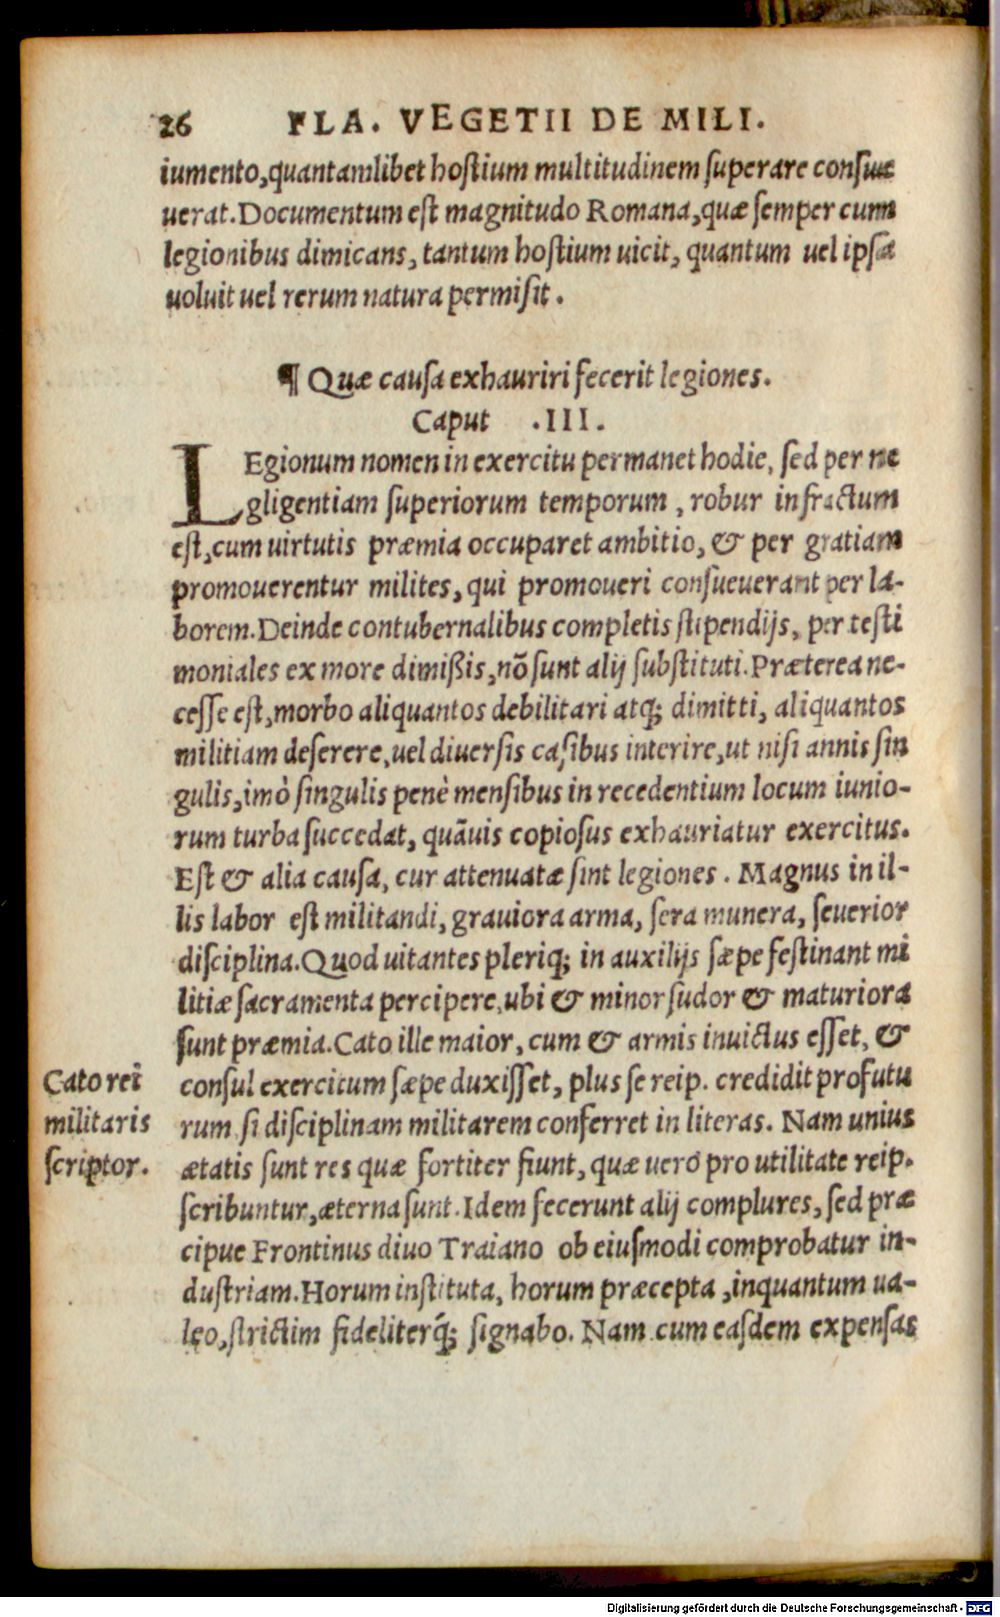 26 FLA. VEGETII DE MILI.
iumento,quantamlibet hoſtium multitudinem ſuperare conſue
uerat.Documentum eſt magnitudo Romana,quæ ſemper cum
legionibus dimicans, tantum hoſtium uicit, quantum uel ipſa
uoluit uel rerum natura permiſit.
¶ Quæ cauſa exhauriri fecerit legiones.
Caput .III.
LEgionum nomen in exercitu permanet hodie, ſed per ne
gligentiam ſuperiorum temporum, robur infractum
eſt,cum uirtutis præmia occuparet ambitio, & per gratiam
promouerentur milites, qui promoueri conſueuerant per la-
borem.Deinde contubernalibus completis ſtipendijs, per teſti
moniales ex more dimißis,nō ſunt alij ſubſtituti.Præterea ne-
ceſſe eſt,morbo aliquantos debilitari atq; dimitti, aliquantos
militiam deſerere,uel diuerſis caſibus interire,ut niſi annis ſin
gulis,imò ſingulis penè menſibus in recedentium locum iunio-
rum turba ſuccedat, quāuis copioſus exhauriatur exercitus.
Eſt & alia cauſa, cur attenuatæ ſint legiones. Magnus in il-
lis labor eſt militandi, grauiora arma, ſera munera, ſeuerior
diſciplina.Quod uitantes pleriq; in auxilijs ſæpe feſtinant mi
litiæ ſacramenta percipere,ubi & minor ſudor & maturiora
ſunt præmia.Cato ille maior, cum & armis inuictus eſſet, &
conſul exercitum ſæpe duxiſſet, plus ſe reip. credidit profutu
rum ſi diſciplinam militarem conferret in literas. Nam unius
ætatis ſunt res quæ fortiter fiunt, quæ uero pro utilitate reip.
ſcribuntur,æterna ſunt.Idem fecerunt alij complures, ſed præ
cipue Frontinus diuo Traiano ob eiuſmodi comprobatur in-
duſtriam.Horum inſtituta, horum præcepta, inquantum ua-
leo,ſtrictim fideliterq́; ſignabo. Nam cum eaſdem expenſas
Cato rei
militaris
ſcriptor.
Digitalisierung gefördert durch die Deutsche Forschungsgemeinschaft - DFG